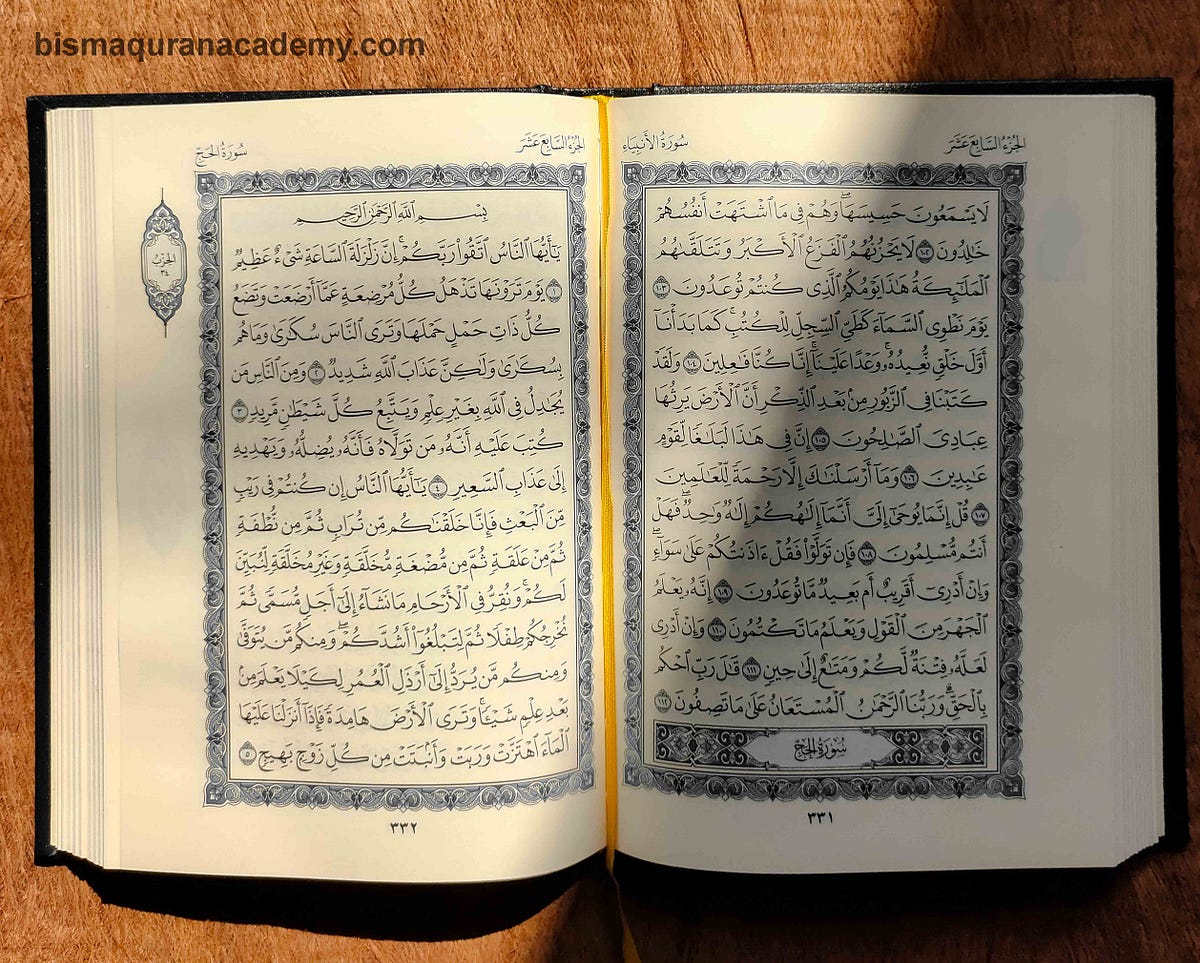 bismaquranacademy.com
الجزء السابع عشر
سورة الأنبياء
لَا يَسْمَعُونَ حَسِيسَهَا ۖ وَهُمْ فِي مَا ٱشْتَهَتْ أَنفُسُهُمْ
خَـٰلِدُونَ ١٠٢ لَا يَحْزُنُهُمُ ٱلْفَزَعُ ٱلْأَكْبَرُ وَتَتَلَقَّىٰهُمُ
ٱلْمَلَـٰٓئِكَةُ هَـٰذَا يَوْمُكُمُ ٱلَّذِى كُنتُمْ تُوعَدُونَ ١٠٣
يَوْمَ نَطْوِى ٱلسَّمَآءَ كَطَىِّ ٱلسِّجِلِّ لِلْكُتُبِ ۚ كَمَا بَدَأْنَآ
أَوَّلَ خَلْقٍ نُّعِيدُهُۥ ۚ وَعْدًا عَلَيْنَآ ۚ إِنَّا كُنَّا فَـٰعِلِينَ ١٠٤ وَلَقَدْ
كَتَبْنَا فِى ٱلزَّبُورِ مِنۢ بَعْدِ ٱلذِّكْرِ أَنَّ ٱلْأَرْضَ يَرِثُهَا
عِبَادِىَ ٱلصَّـٰلِحُونَ ١٠٥ إِنَّ فِى هَـٰذَا لَبَلَـٰغًا لِّقَوْمٍ
عَـٰبِدِينَ ١٠٦ وَمَآ أَرْسَلْنَـٰكَ إِلَّا رَحْمَةً لِّلْعَـٰلَمِينَ
١٠٧ قُلْ إِنَّمَا يُوحَىٰٓ إِلَىَّ أَنَّمَآ إِلَـٰهُكُمْ إِلَـٰهٌ وَٰحِدٌ ۖ فَهَلْ
أَنتُم مُّسْلِمُونَ ١٠٨ فَإِن تَوَلَّوْا۟ فَقُلْ ءَاذَنتُكُمْ عَلَىٰ سَوَآءٍ ۖ
وَإِنْ أَدْرِىٓ أَقَرِيبٌ أَم بَعِيدٌ مَّا تُوعَدُونَ ١٠٩ إِنَّهُۥ يَعْلَمُ
ٱلْجَهْرَ مِنَ ٱلْقَوْلِ وَيَعْلَمُ مَا تَكْتُمُونَ ١١٠ وَإِنْ أَدْرِى
لَعَلَّهُۥ فِتْنَةٌ لَّكُمْ وَمَتَـٰعٌ إِلَىٰ حِينٍ ١١١ قَـٰلَ رَبِّ ٱحْكُم
بِٱلْحَقِّ ۗ وَرَبُّنَا ٱلرَّحْمَـٰنُ ٱلْمُسْتَعَانُ عَلَىٰ مَا تَصِفُونَ ١١٢
سُورَةُ الحَجِّ
٣٣١
الجزء السابع عشر
سورة الحج
بِسْمِ ٱللَّهِ ٱلرَّحْمَـٰنِ ٱلرَّحِيمِ
يَـٰٓأَيُّهَا ٱلنَّاسُ ٱتَّقُوا۟ رَبَّكُمْ ۚ إِنَّ زَلْزَلَةَ ٱلسَّاعَةِ شَىْءٌ عَظِيمٌ
١ يَوْمَ تَرَوْنَهَا تَذْهَلُ كُلُّ مُرْضِعَةٍ عَمَّآ أَرْضَعَتْ وَتَضَعُ
كُلُّ ذَاتِ حَمْلٍ حَمْلَهَا وَتَرَى ٱلنَّاسَ سُكَـٰرَىٰ وَمَا هُم
بِسُكَـٰرَىٰ وَلَـٰكِنَّ عَذَابَ ٱللَّهِ شَدِيدٌ ٢ وَمِنَ ٱلنَّاسِ مَن
يُجَـٰدِلُ فِى ٱللَّهِ بِغَيْرِ عِلْمٍ وَيَتَّبِعُ كُلَّ شَيْطَـٰنٍ مَّرِيدٍ ٣
كُتِبَ عَلَيْهِ أَنَّهُۥ مَن تَوَلَّاهُ فَأَنَّهُۥ يُضِلُّهُۥ وَيَهْدِيهِ
إِلَىٰ عَذَابِ ٱلسَّعِيرِ ٤ يَـٰٓأَيُّهَا ٱلنَّاسُ إِن كُنتُمْ فِى رَيْبٍ
مِّنَ ٱلْبَعْثِ فَإِنَّا خَلَقْنَـٰكُم مِّن تُرَابٍ ثُمَّ مِن نُّطْفَةٍ
ثُمَّ مِنْ عَلَقَةٍ ثُمَّ مِن مُّضْغَةٍ مُّخَلَّقَةٍ وَغَيْرِ مُخَلَّقَةٍ لِّنُبَيِّنَ
لَكُمْ ۚ وَنُقِرُّ فِى ٱلْأَرْحَامِ مَا نَشَآءُ إِلَىٰٓ أَجَلٍ مُّسَمًّى ثُمَّ
نُخْرِجُكُمْ طِفْلًا ثُمَّ لِتَبْلُغُوٓا۟ أَشُدَّكُمْ ۖ وَمِنكُم مَّن يُتَوَفَّىٰ
وَمِنكُم مَّن يُرَدُّ إِلَىٰٓ أَرْذَلِ ٱلْعُمُرِ لِكَيْلَا يَعْلَمَ مِنۢ
بَعْدِ عِلْمٍ شَيْـًٔا ۚ وَتَرَى ٱلْأَرْضَ هَامِدَةً فَإِذَآ أَنزَلْنَا عَلَيْهَا
ٱلْمَآءَ ٱهْتَزَّتْ وَرَبَتْ وَأَنۢبَتَتْ مِن كُلِّ زَوْجٍۭ بَهِيجٍ ٥
الحزب
٣٤
٣٣٢